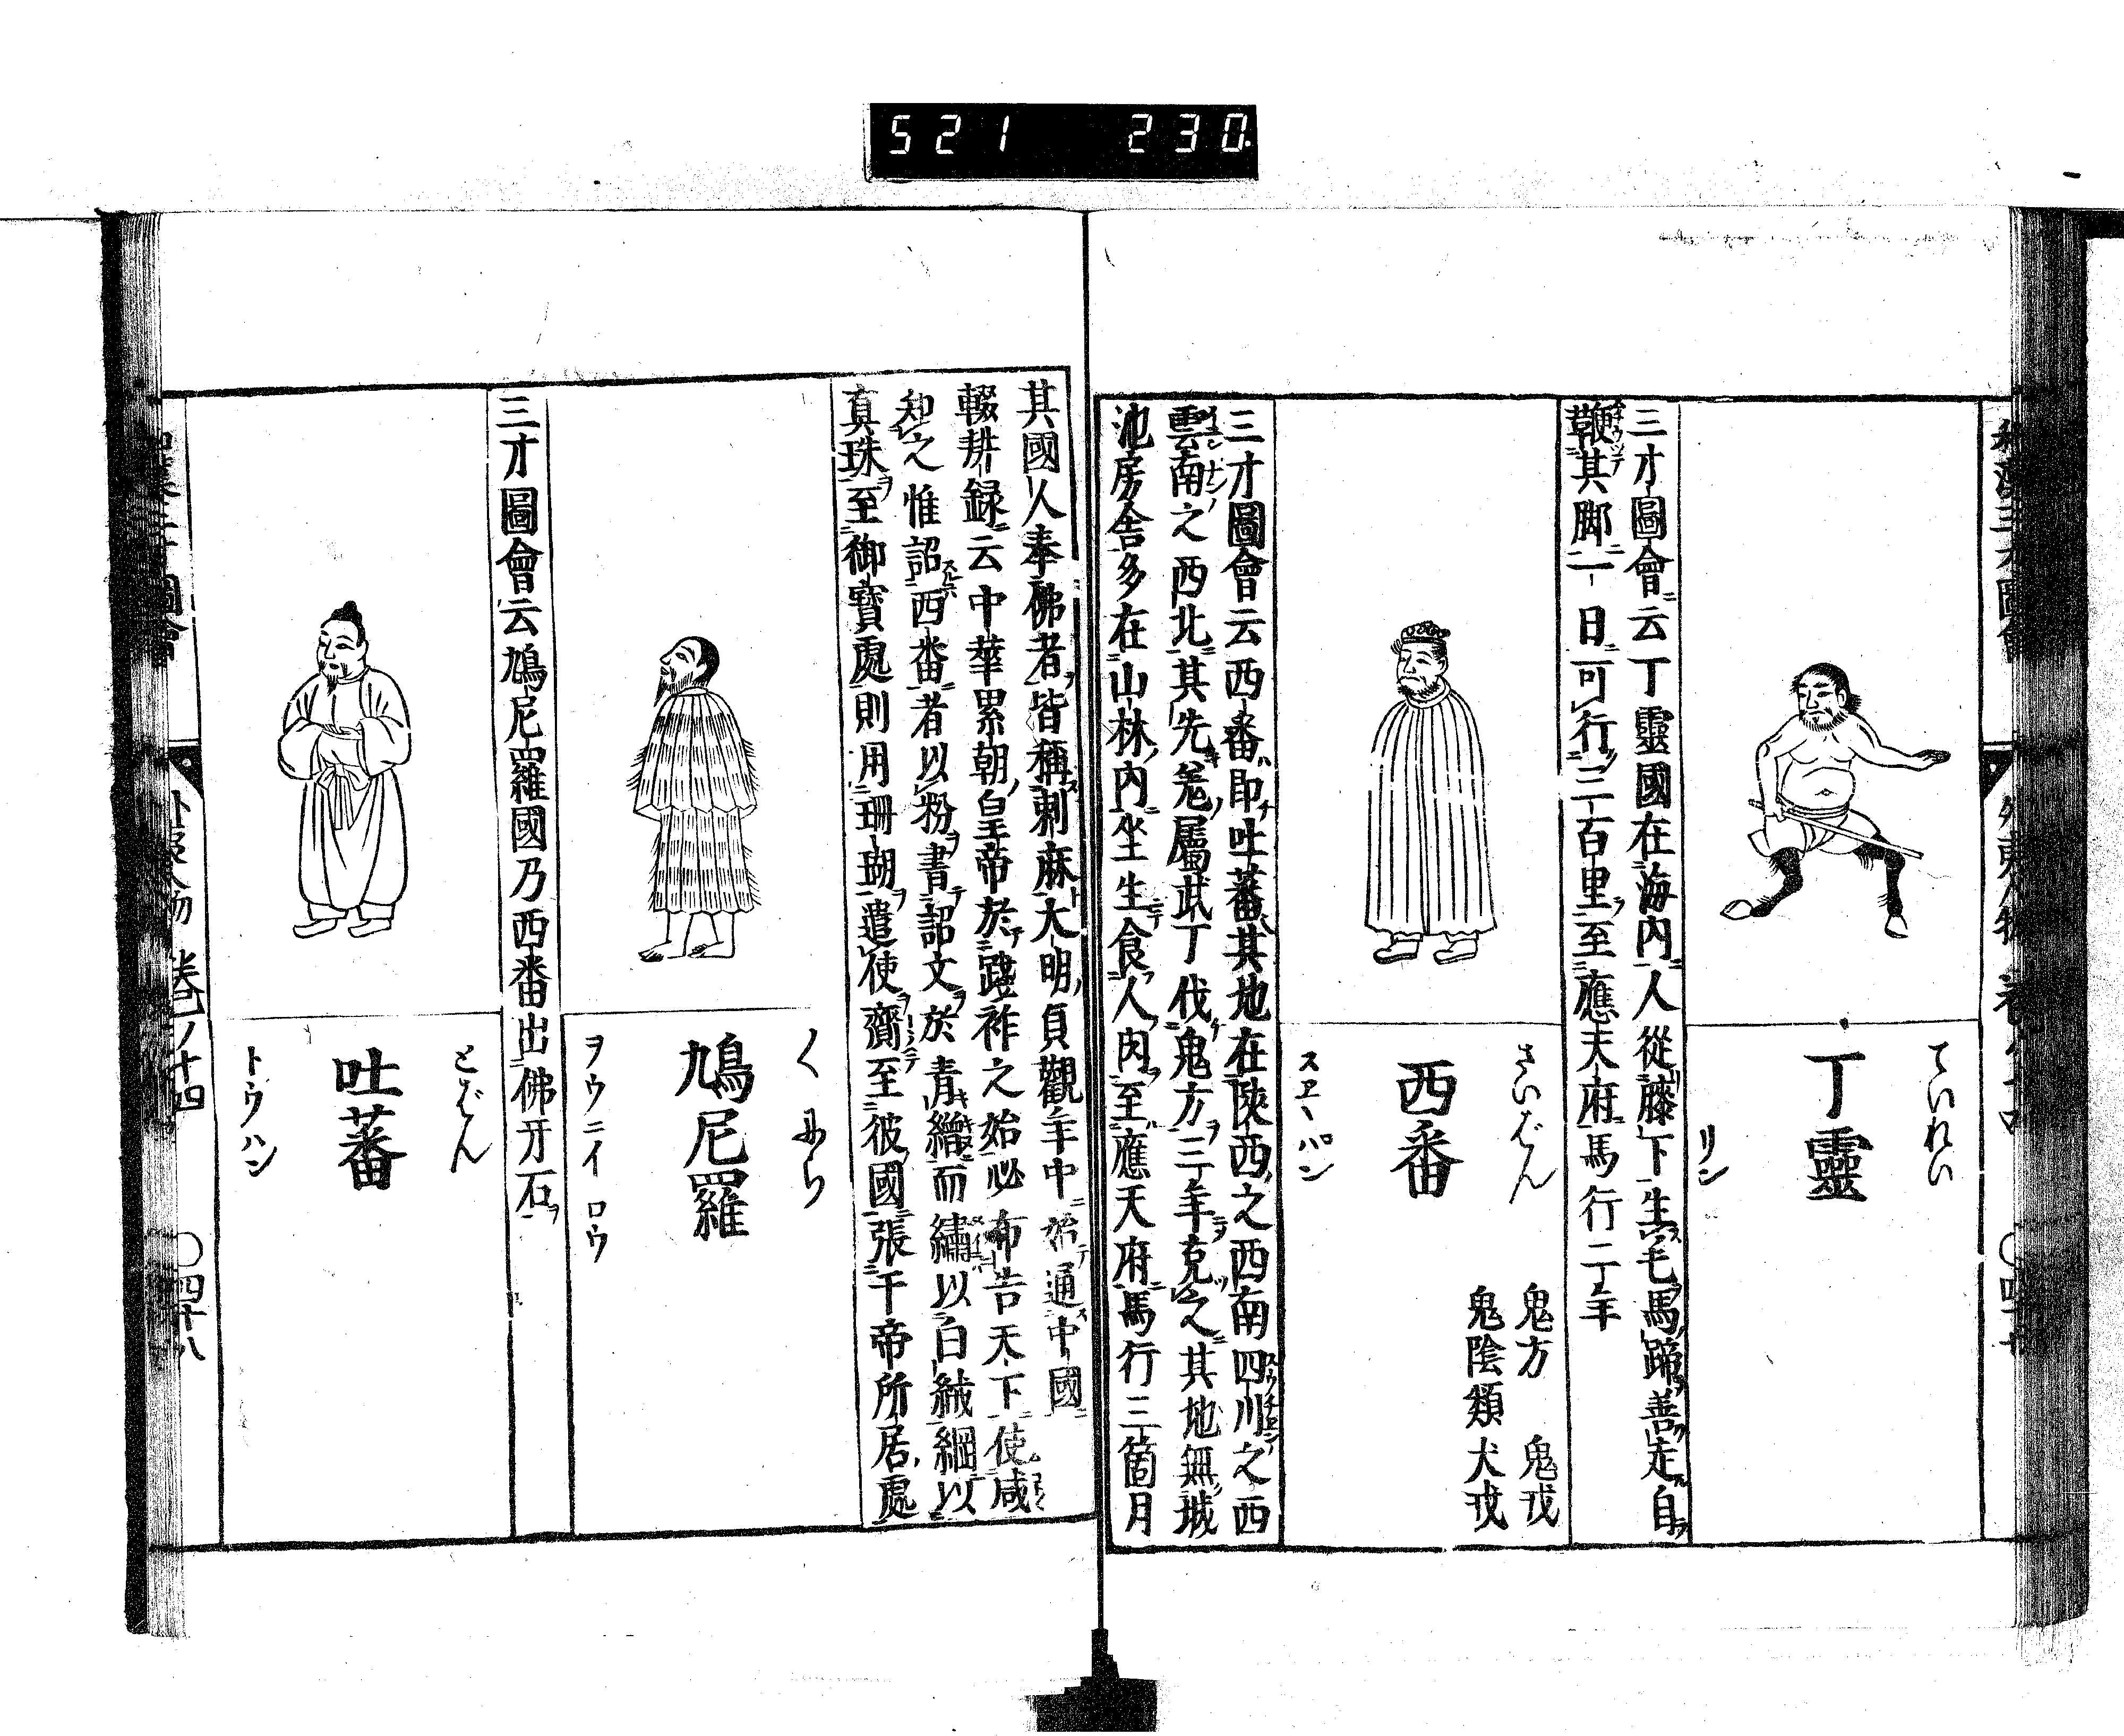 521 230.
和漢三才圖會
外夷人物 卷ノ十四
〇四十七
ていれい
丁靈
リン
三才圖會云丁靈國在海內人從膝下生毛馬蹄善走自
鞭其脚一日可行三百里至應天府馬行二年
さいばん
西番
スヱヽパン
鬼方 鬼戎
鬼陰類犬戎
三才圖會云西番即吐蕃其地在陝西之西南四川之西
雲南之西北其先羗屬武丁伐鬼方三年克之其地無城
池房舎多在山林內坐生食人肉至應天府馬行三箇月
其國人奉佛者皆稱剌麻大明貞觀年中始通中國
輟耕録云中華累朝皇帝於踐祚之始必布告天下使咸
知之惟詔西番者以粉書詔文於青繒而繡以白絨綱以
真珠至御寶處則用珊瑚遣使齎至彼國張于帝所居處
くにら
鳩尼羅
ヲウニイロウ
三才圖會云鳩尼羅國乃西番出佛牙石
とばん
吐蕃
トウハン
和漢三才圖會
外夷人物 卷ノ十四
〇四十八